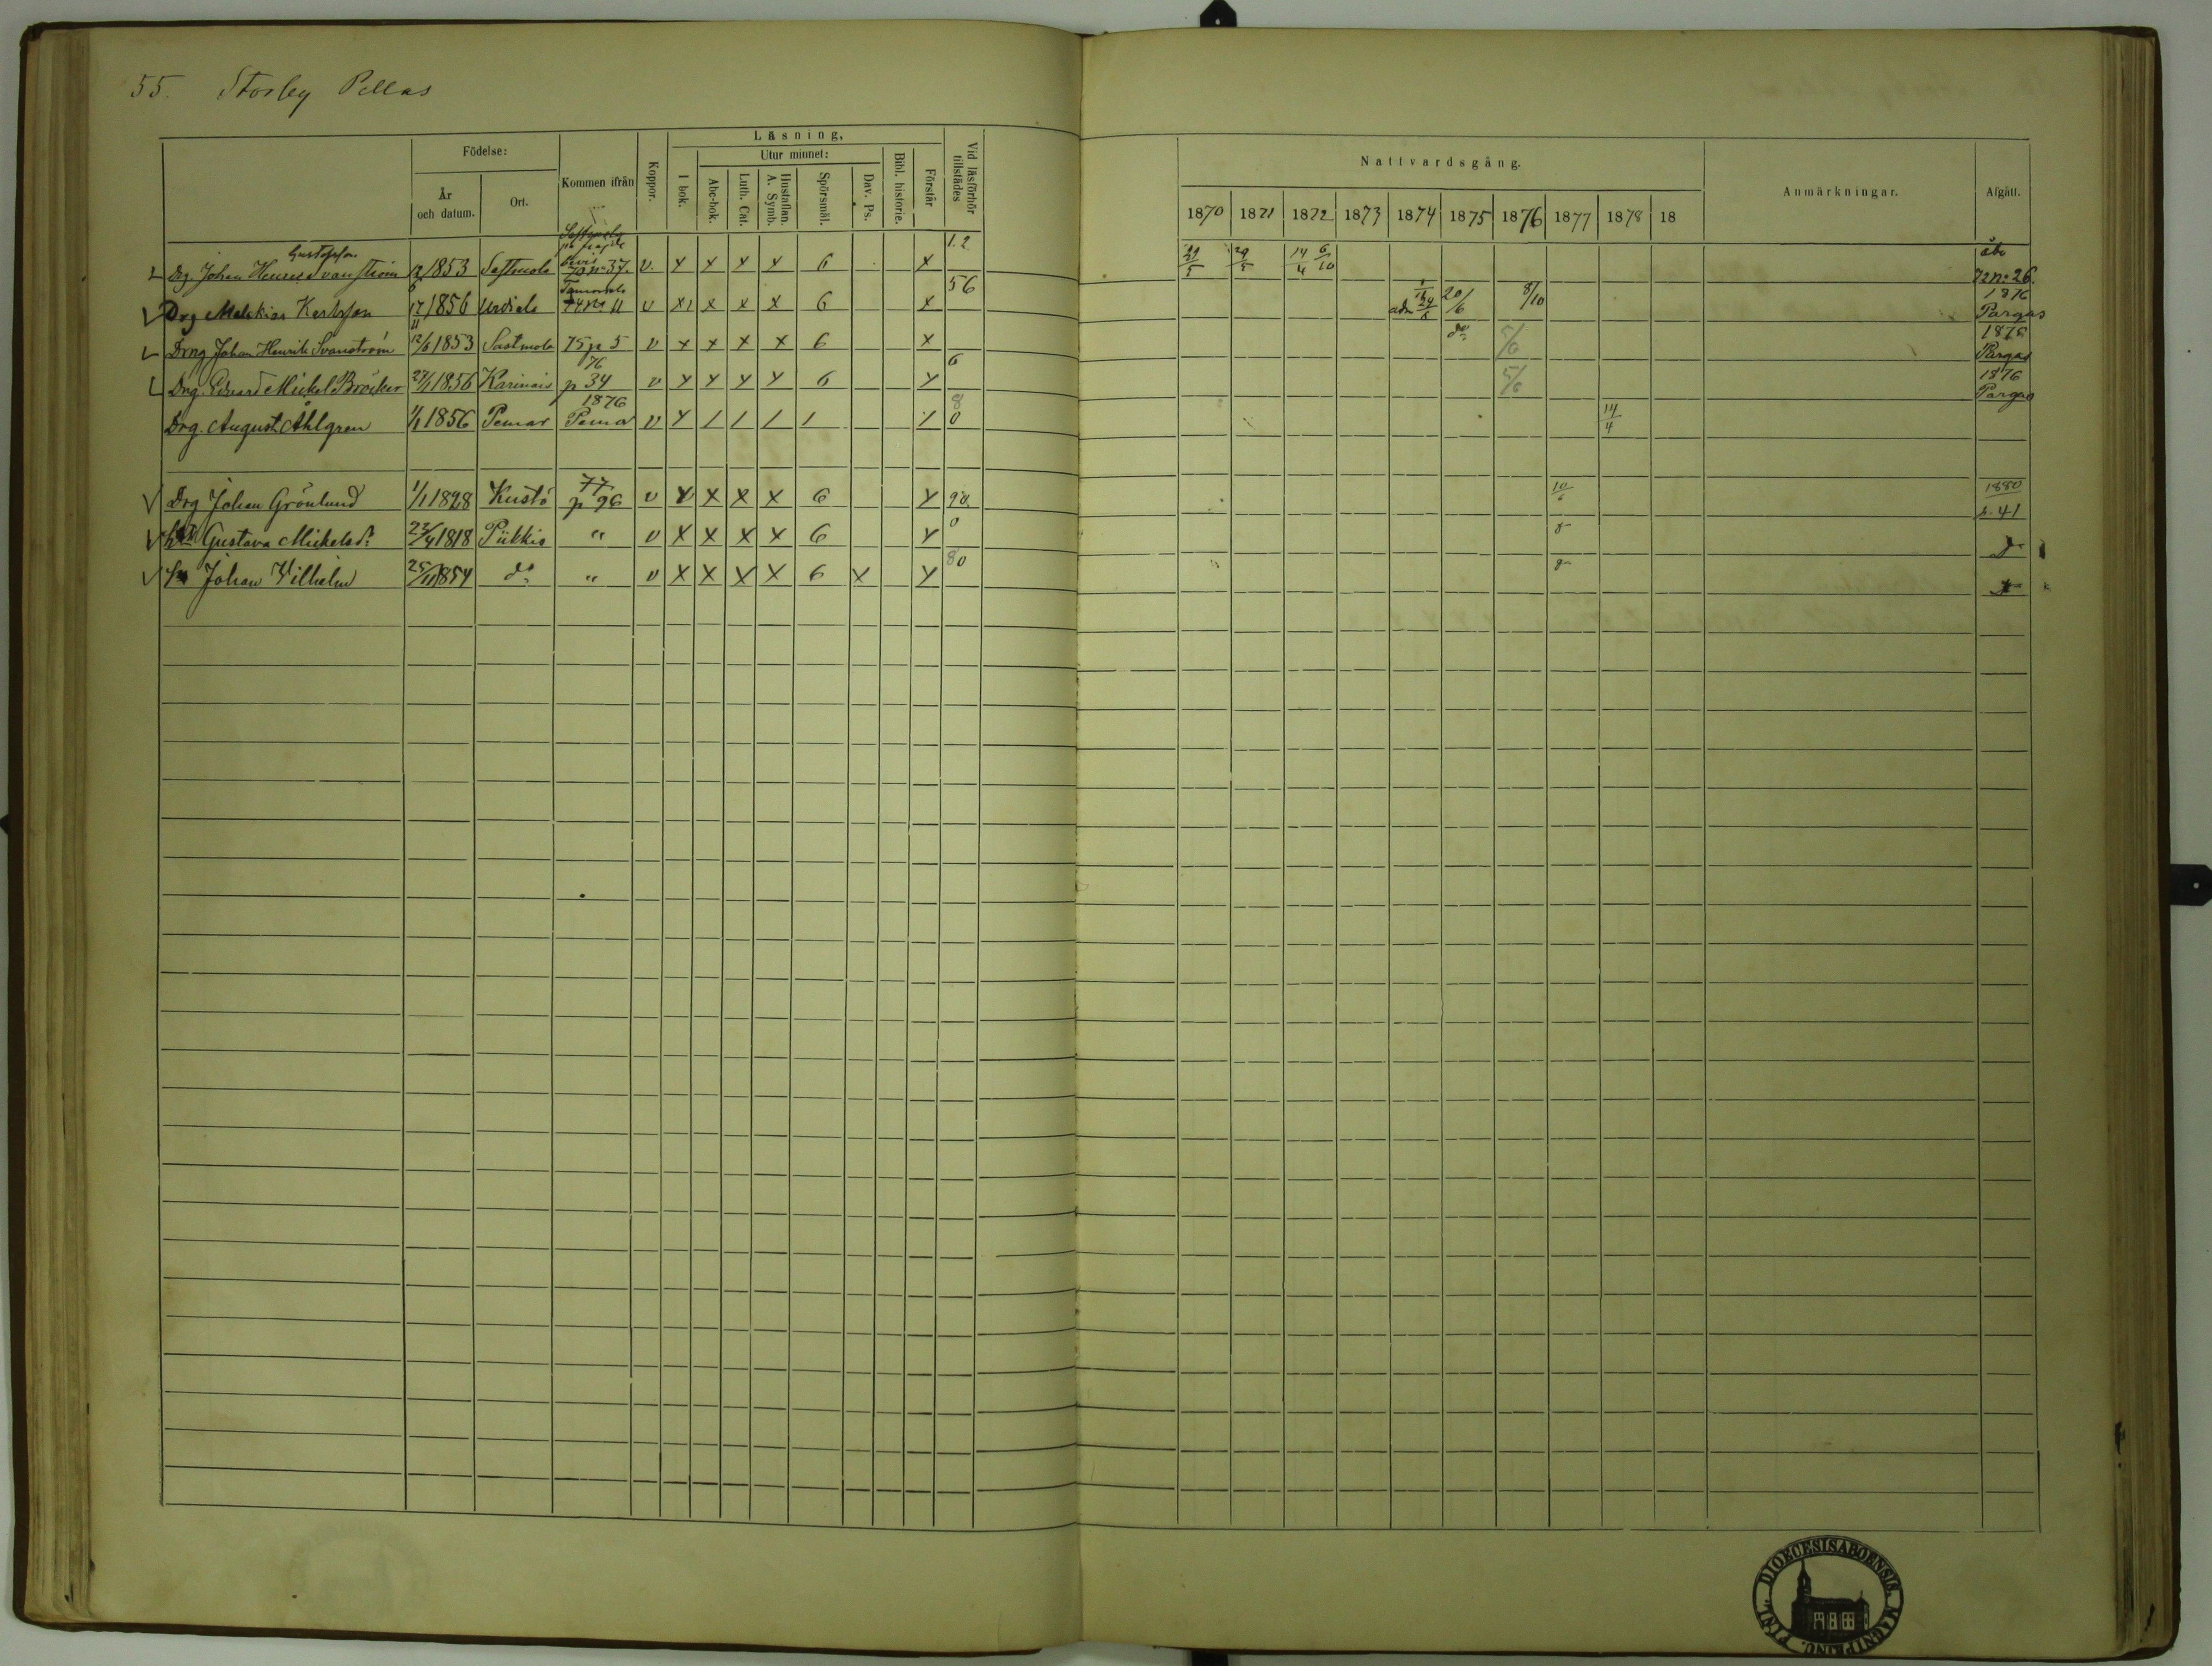 55. Storby Pellas
Födelse:
År och datum.
Ort.
Kommen ifrån
Koppor.
Läsning,
I bok.
Utur minnet:
Abc-bok.
Luth. Cat.
Hustaflan. A. Symb.
Spörsmål.
Dav. Ps.
Bibl. historie.
Förstår
Vid läsförhör tillstädes
Nattvardsgång.
1870 1871 1872 1873 1874 1875 1876 1877 1878 18
Anmärkningar.
Afgått.
Gustafsson
Drg. Johan Henric Svanström 12/6 1853 Sastmola 70 no 37. v. x x x x 6 x 1.2 29/5 14/4 6/10 åbo 72 no 26.
Drg Malakias Karlsson 17/11 1856 Urdiala 74 no 11 v x x x x 6 x 56 20/6 8/10 1876 Pargas
Drng Johan Henrik Svanström 12/6 1853 Sastmola 75 p 5 v x x x x 6 x do 5/6 1878 Pargas
Drg. Edvard Mickel Bröcker 1856 Karinais 76 p 34 v x x x x 6 x 6 5/6 1876 Pargas
Drg. August Åhlgren 1/1 1856 Pemar 1876 Pemar v x / / / 1 / 8 0 14/4
Drg Johan Grönlund 1/1 1828 Kustö 77 p 96 v x x x x 6 x 90 10/6 1880 p. 41
Gustava Mickelsdr 22/4 1818 Piikkis " v x x x x 6 x 0 do
Johan Wilhelm 25/11 1854 do " v x x x x 6 x x 80
DIOECESIS ABOENSIS. MAGNI PRINC. FINL.